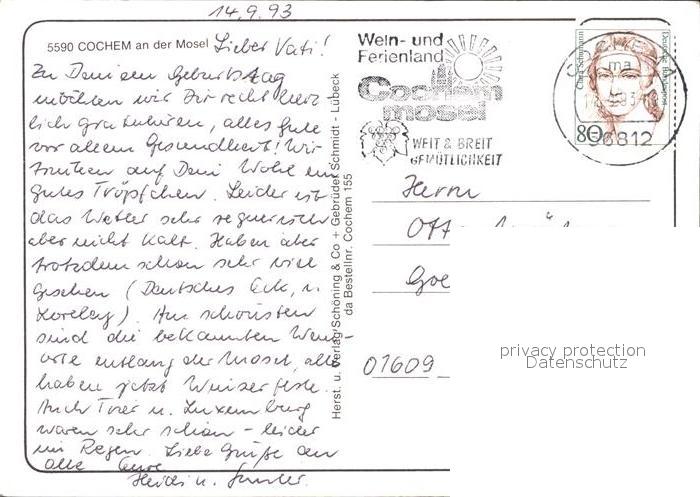 14.9.93
5590 COCHEM an der Mosel
Lieber Vati!
Zu Deinem Geburtstag
möchten wir Dir recht herz
lich gratulieren, alles Gute
vor allem Gesundheit! Wir
trinken auf Dein Wohl ein
gutes Tröpfchen. Leider ist
das Wetter sehr regnerisch
aber nicht kalt. Haben aber
trotzdem schon sehr viel
gesehen (Deutsches Eck, u.
Loreley). Am schönsten
sind die bekannten Wein-
orte entlang der Mosel, alle
haben jetzt Winzerfeste.
Auch Trier u. Luxemburg
waren sehr schön - leider
im Regen. Liebe Grüße an
alle Eure
Heidi u.
Herst. u. Verlag Schöning & Co + Gebrüder Schmidt - Lübeck
da Bestellnr. Cochem 155
Wein- und
Ferienland
Cochem
mosel
WEIT & BREIT
GEMÜTLICHKEIT
COCHEM
ma
56812
Clara Schumann
Deutsche Bundespost
80
Herrn
Otto
Goe
01609
privacy protection
Datenschutz